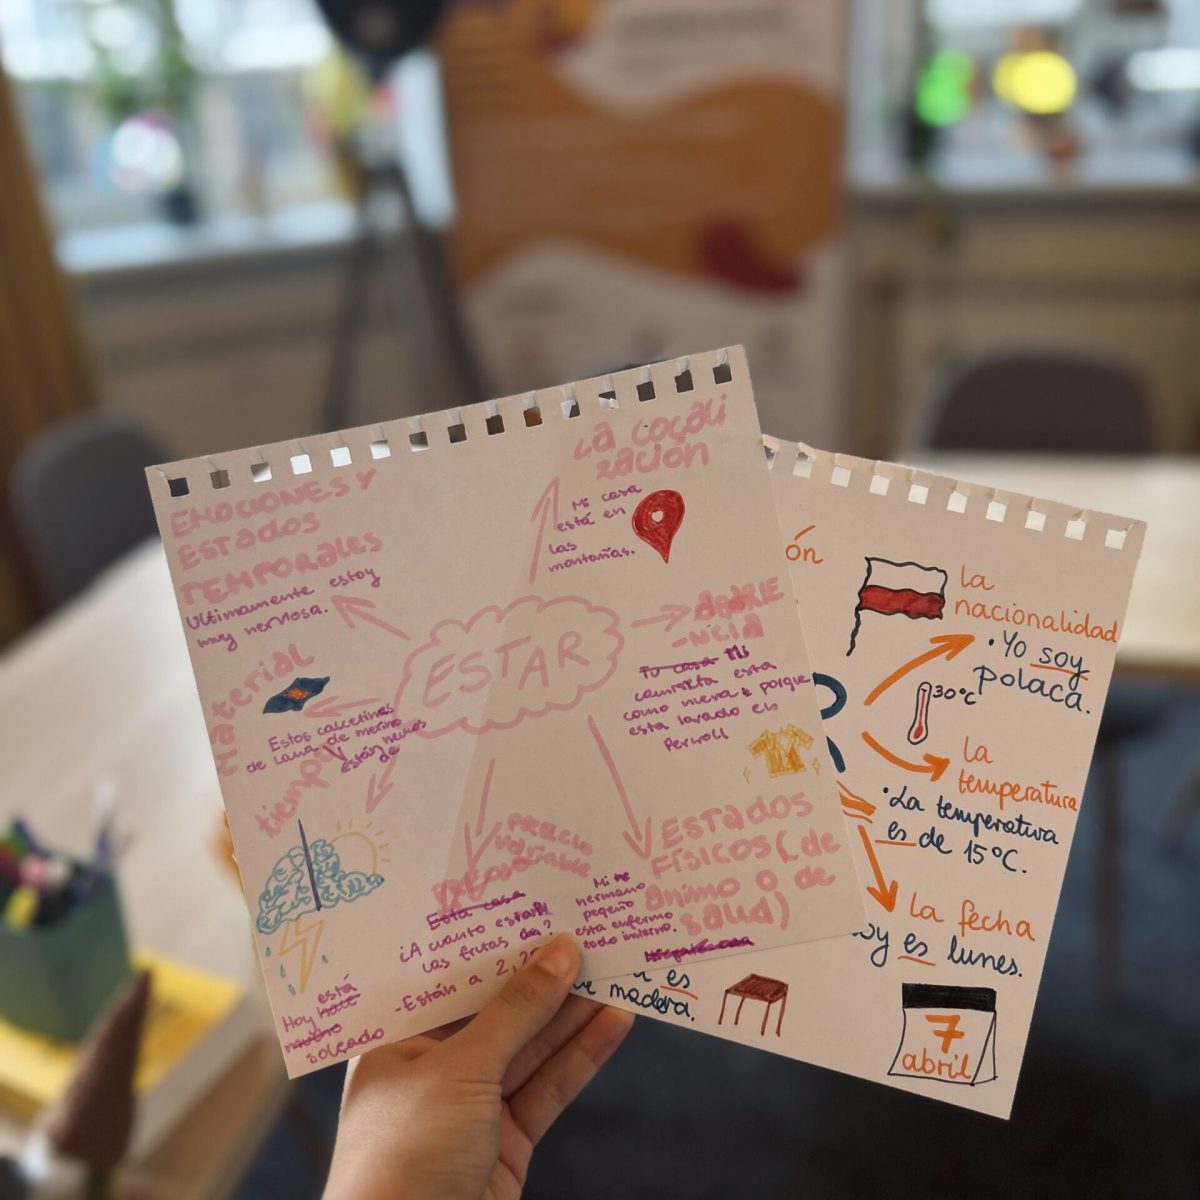 EMOCIONES Y
ESTADOS
TEMPORALES
Ultimamente estoy
muy nerviosa.
La locali
zación
Mi casa
está en
las
montañas.
ESTAR
Tu casa Mi
camiseta esta
como nueva porque
esta lavado en
Perwoll
Material
Estos calcetines
de lana de merino
están hechos
de
tiempo
Hoy está
soleado
PRECIO
variable
Esta casa
¿A cuánto están
las frutas
-Están a 2,
ESTADOS
FÍSICOS (de
ánimo o de
salud)
Mi
hermano
pequeño
esta enfermo
todo invierno.
ón
la
nacionalidad
• Yo soy
polaca.
30°C
la
temperatura
• La temperatura
es de 15°C.
la fecha
oy es lunes.
es
de madera.
7
abril